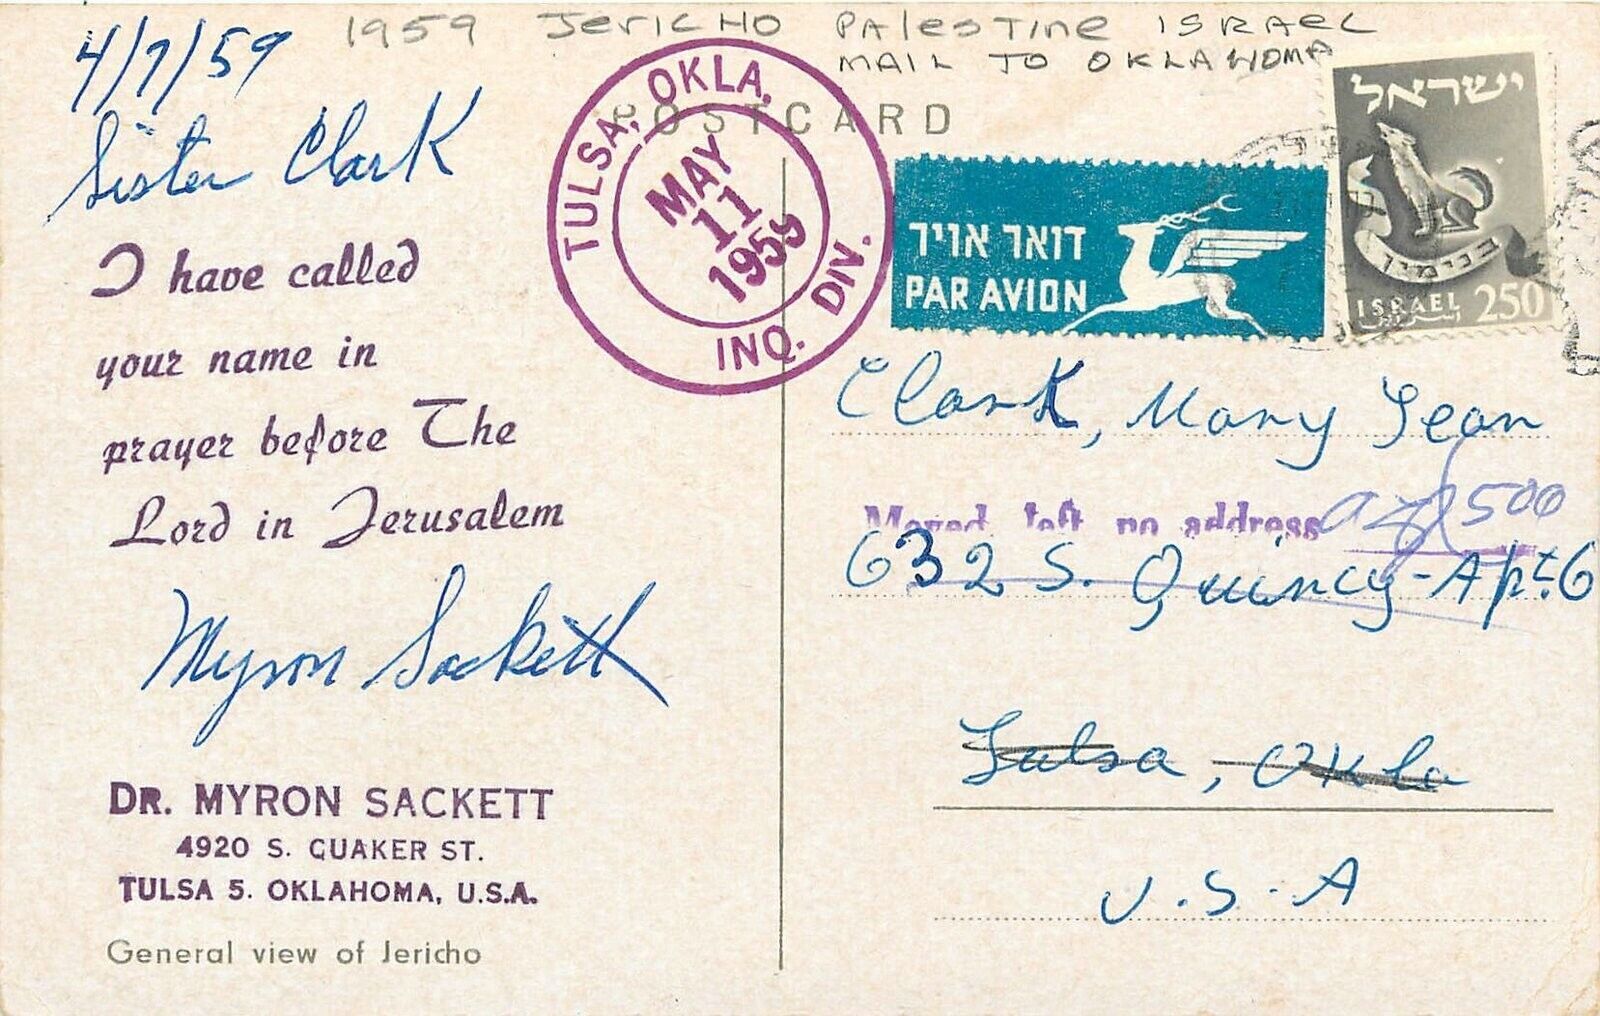 1959 Jericho Palestine Israel
Mail to Oklahoma
4/7/59
Sister Clark
I have called
your name in
prayer before The
Lord in Jerusalem
Myron Sackett
DR. MYRON SACKETT
4920 S. QUAKER ST.
TULSA 5. OKLAHOMA, U.S.A.
General view of Jericho
POSTCARD
TULSA, OKLA.
MAY
11
1959
INQ. DIV.
דואר אויר
PAR AVION
ישראל
בנימין
ISRAEL 250
Clark, Mary Jean
Moved left no address
500
632 S. Quincy - Apt. 6
Tulsa, Okla
U.S.A